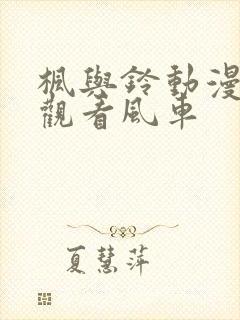 楓與鈴動漫
觀看風車
夏慧萍